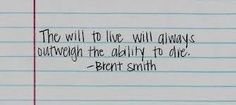 The will to live will always
outweigh the ability to die.
-Brent Smith